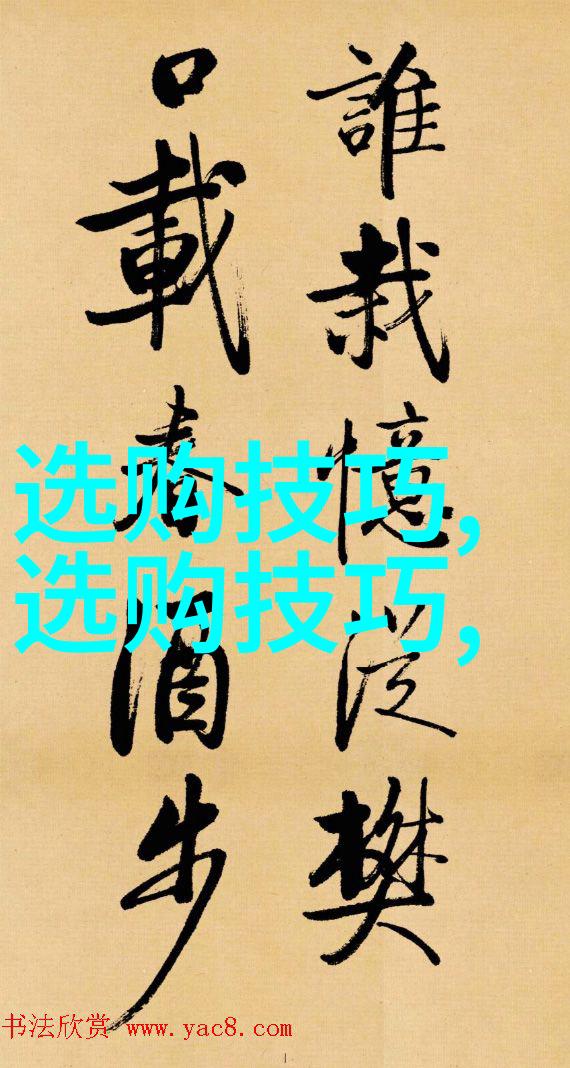 誰栽憶從樊
口載春酒步
选购技巧,
选购技巧,
书法欣赏 www.yac8.com